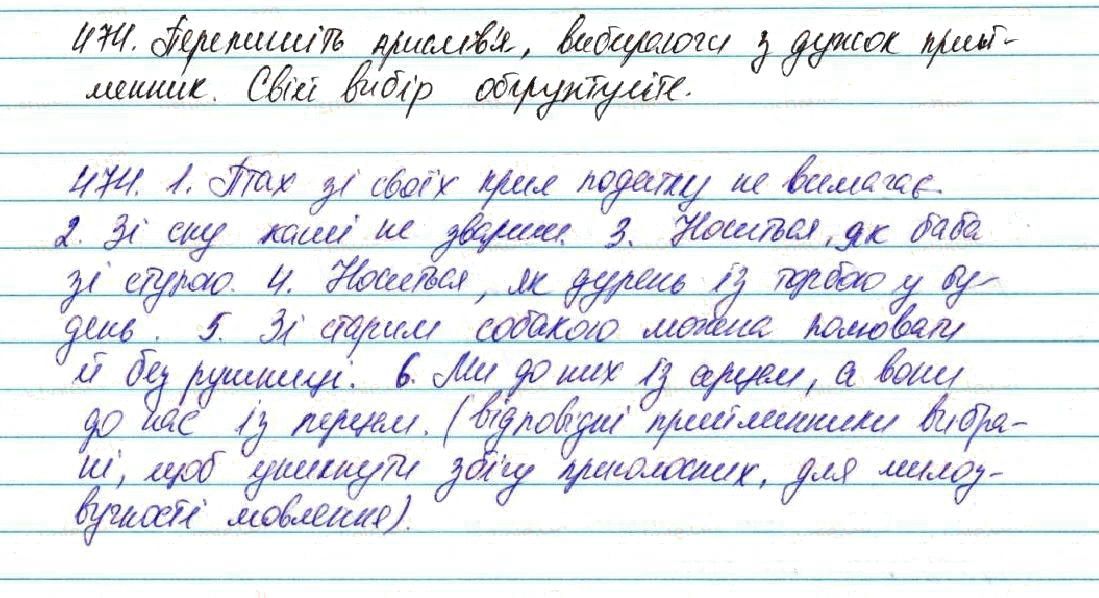 474. Перепишіть прислів'я, вибираючи з дужок прий-
менник. Свій вибір обґрунтуйте.
474. 1. Птах зі своїх крил податку не вимагає.
2. Зі сну каші не звариш. 3. Носиться, як баба
зі ступою. 4. Носиться, як дурень із торбою у бу-
день. 5. Зі старим собакою можна полювати
й без рушниці. 6. Ми до них із серцем, а вони
до нас із перцем. (Відповідні прийменники вибра-
ні, щоб уникнути збігу приголосних, для милоз-
вучності мовлення).